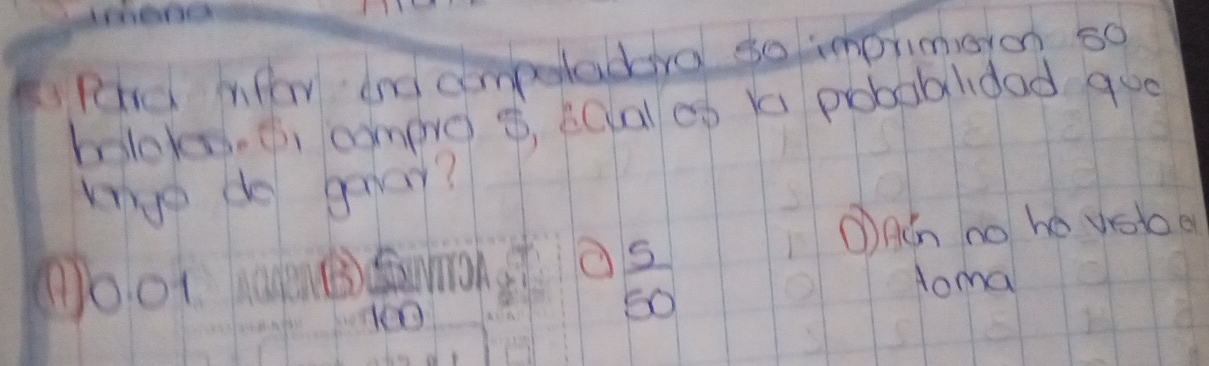 Para rifar una computadora se imprimieron 50
boletos. Si compro 5, ¿Cual es la probabilidad que
tengo de ganar?
A) 0.01 B) 50/100 C) 5/50 D) Aún no he visto el
tema